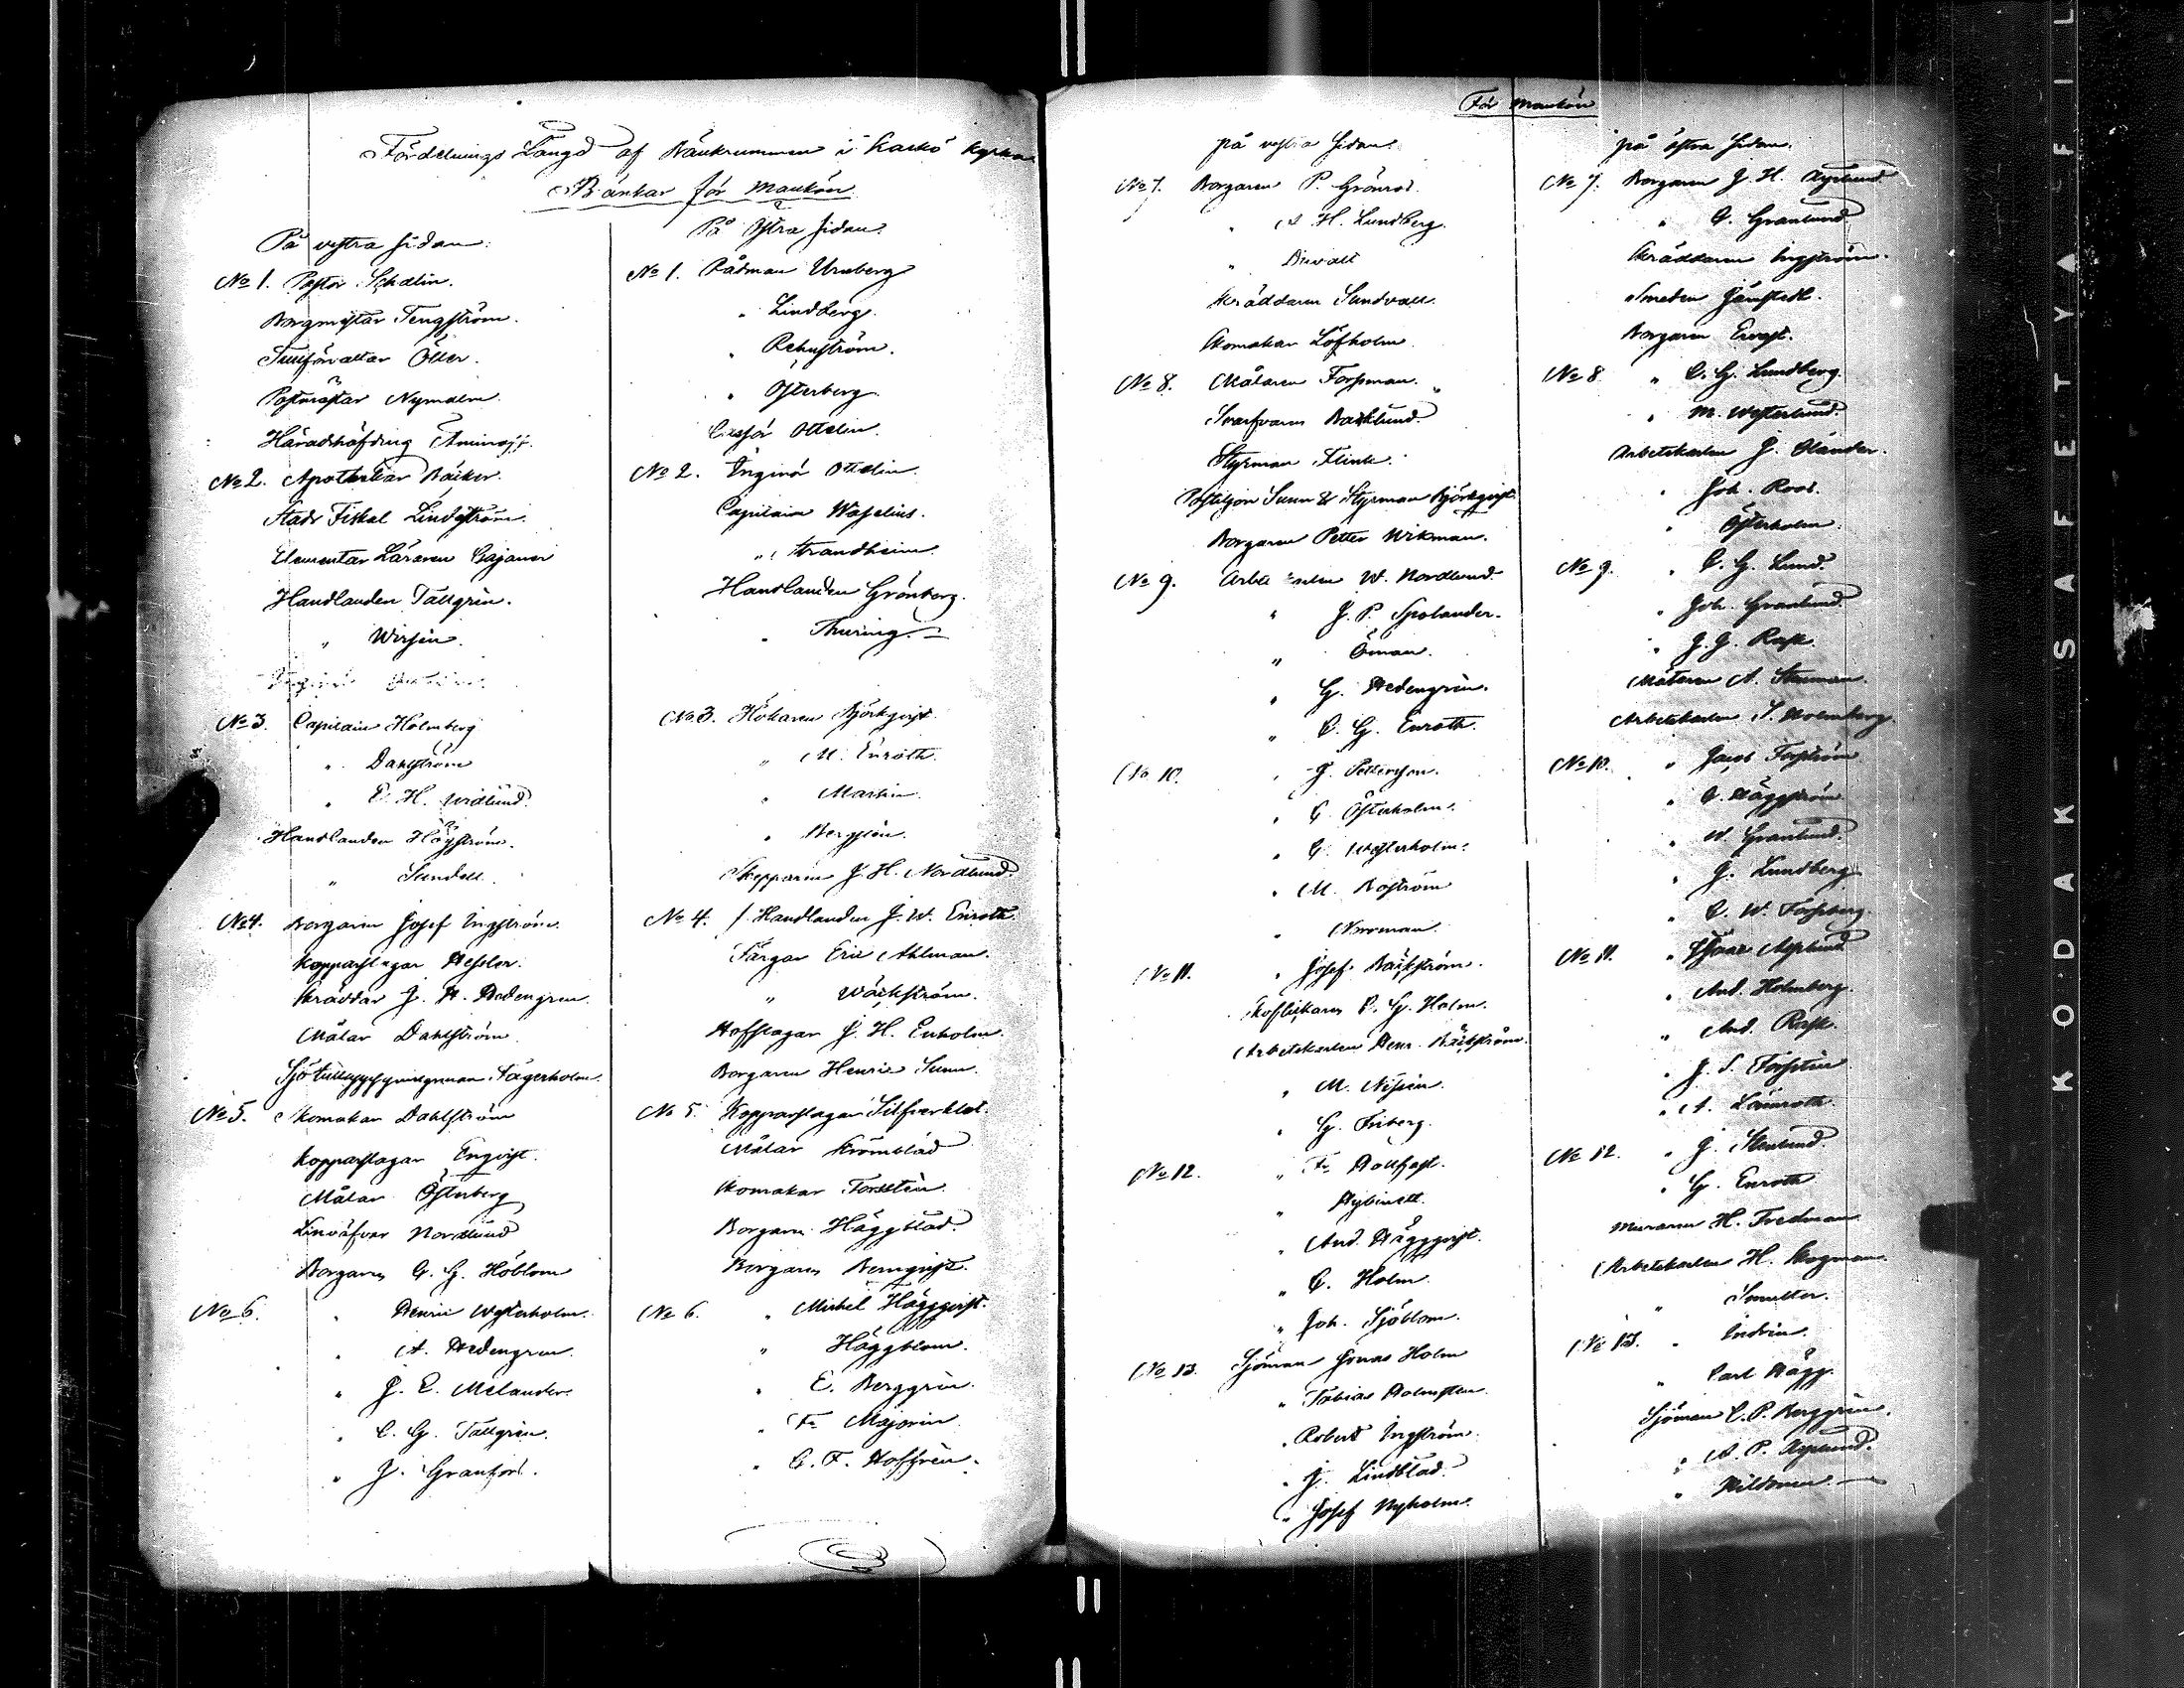 Fördelnings Längd af Bänkrummen i Kaskö Kyrka
Bänkar för Mankön
På vestra sidan:
No 1. Pastor Schalin.
Borgmästar Tengström.
Tullförvaltar Öller.
Postmästar Nymalm.
Häradshöfding Aminoff.
No 2. Apothekar Bäcker.
Stads Fiskal Lindström.
Elementar Läraren Cajanus
Handlanden Tallgrén.
" Wirsén.
No 3. Capitain Holmberg
" Dahlström
" E. H. Widlund
Handlanden Högström.
" Sundell.
No 4. Borgaren Josef Ingström.
Kopparslagar Hessler.
Skräddar J. A. Hedengren.
Målar Dahlström.
Fagerholm.
No 5. Skomakar Dahlström
Kopparslagar Engqvist.
Målar Österberg
Linväfvar Nordlund
Borgaren G. G. Höblom
No 6. " Henric Westerholm.
" A. Hedengren.
" J. E. Melander.
" C. G. Tallgrén.
" J. Granfors.
På Östra sidan:
No 1. Rådman Urnberg
" Lindberg.
" Rehnström.
" Österberg.
Cassör Ottelin.
No 2. Inginör Ottelin.
Capitain Waselius.
" Strandheim.
Handlanden Grönberg.
" Thuring.
No 3. Hökaren Björkqvist
" M. Enroth.
" Martin.
" Bergsén.
Skepparen J. H. Nordlund.
No 4. f. Handlanden J. W. Enroth.
Färgar Eric Ahlman.
" Wäckström.
Hofslagar J. H. Enholm.
Borgaren Henric Sunn.
No 5. Kopparslagar Silfverklot.
Målar Strömblad
Skomakar Forsstén.
Borgaren Häggblad.
Borgaren Berngvist.
No 6. " Michel Häggqvist.
" Häggblom.
" E. Berggrén.
" Fr. Majorin.
" C. F. Hoffrén.
För Mankön
på vestra sidan.
No 7. Borgaren P. Grönros.
" A H. Lundberg.
"
Skräddaren Sundvall.
Skomakar Löfholm
No 8. Målaren Forssman.
Svarfvaren Backlund.
Styrman Flink.
Postiljon Sunn & Styrman Björkqvist.
Borgaren Petter Wikman.
No 9. W. Nordlund.
" J. P. Spolander.
" Öman.
" G. Hedengrén.
" C. G. Enroth.
No 10. " J. Pettersson.
" C. Österholm.
" G. Westerholm.
" M. Boström
" Norrman.
No 11. " Josef Bäckström.
Skoflickaren P. G. Holm.
Arbetskarlen Henr. Bäckström.
" M. Nissén.
" G. Friberg.
No 12. " Fr. Hollfast.
" Hybinett.
" And. Häggqvist.
" C. Holm.
" Joh. Sjöblom.
No 13. Sjöman Jonas Holm
" Tobias Holmsten.
" Robert Ingström.
" J. Lindblad.
" Josef Nyholm.
på östra sidan.
No 7. Borgaren J. H. Asplund.
" G. Granlund
Skräddaren Ingström.
Smeden Jernstedt.
Borgaren Ervast.
No 8. " C. G. Lundberg.
" M. Westerlund.
Arbetskarlen J. Olander.
" Joh. Roos.
" Österholm.
No 9. " C. G. Lund.
" Joh. Granlund.
" J. G. Rask.
Målaren A. Stenman.
Arbetskarlen S. Holmberg.
No 10. " Jacob Forsström
" G. Häggström
" W. Granlund.
" J. Lundberg.
" C. W. Forsberg.
No 11. " Isaac Asplund
" And. Holmberg.
" And. Rask.
" J. S. Forsstén
" A. Lönnroth.
No 12. " J. Stenlund.
" G. Enroth
Muraren H. Fredman
Arbetskarlen H. Skogman.
" Smulter.
No 13. " Indrén.
" Carl Hägg.
Sjöman C. P. Berggrén.
" A. P. Asplund.
" Hildonen.
KODAK SAFETY A FIL